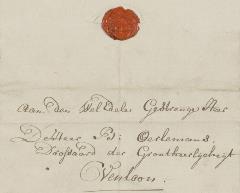 Aan den Wel Edele Gestrenge Heer
Den Heer P: Oerlemans
Drossaard der Grontheerlykheyt
Venloon